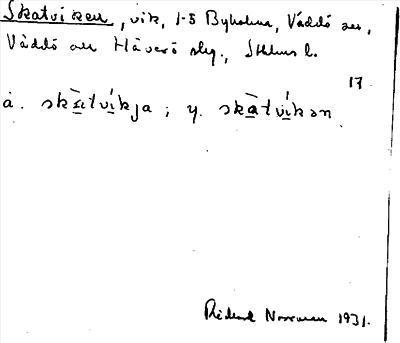 Skatviken, vik, 1-5 Byholma, Väddö sn,
Väddö och Häverö skg., Sthlms l.
17
ä. skà̱tví̱kja; y. skà̱tví̱kən
Rickard Norrman 1931.